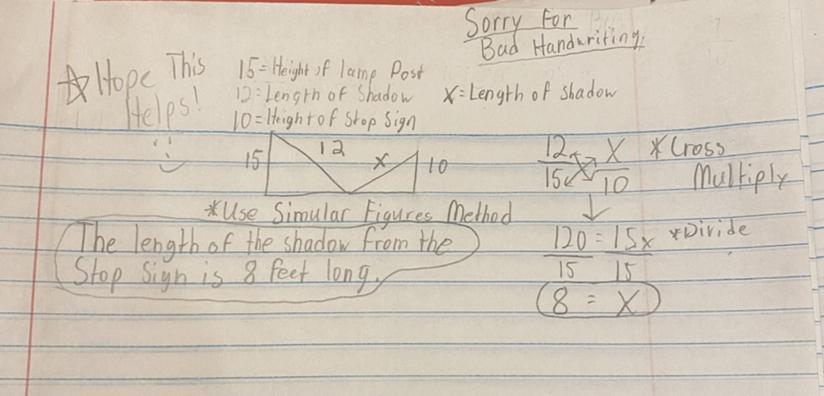 Sorry For
Bad Handwriting.
☆ Hope This
Helps!
:)
15=Height of lamp Post
12=Length of Shadow
10=Height of Stop Sign
X=Length of shadow
15 12 x 10
*Use Simular Figures Method
The length of the shadow from the
Stop Sign is 8 feet long.
12 X *Cross
15 10 Multiply
120 = 15x *Divide
15 15
8 = X